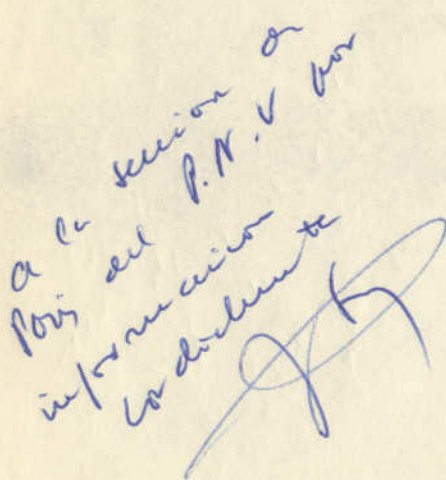 a la seccion de
Paris del P.N.V por
informacion
cordialmente